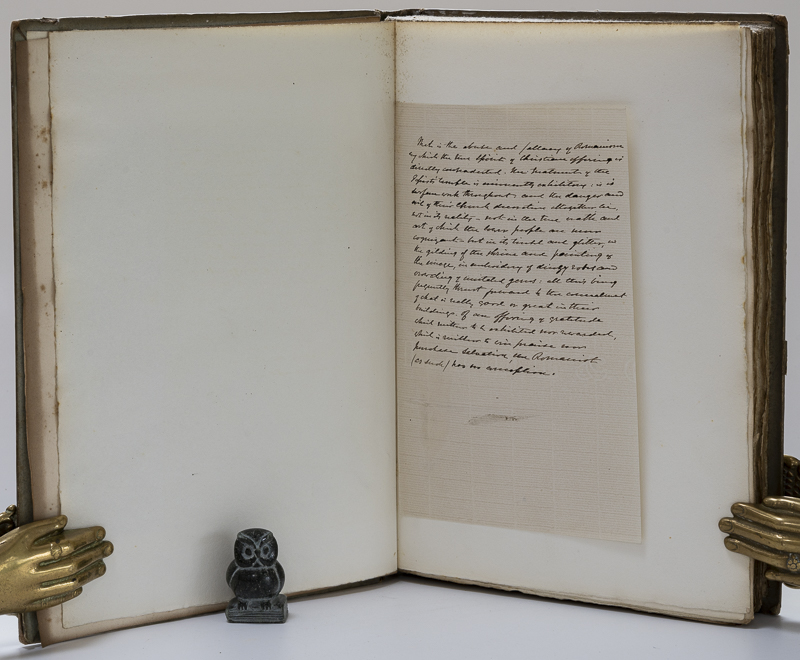 is the abuse and fallacy of Romanism
by which the true spirit of Christian offering is
directly contradicted. The treatment of the
Papists' temple is eminently exhibitory; it is
surface work throughout; and the danger and
evil of their church decoration altogether lie,
not in its reality - not in the true wealth and
art of which the lower people are never
cognizant - but in its tinsel and glitter, in
the gilding of the shrine and painting of
the image, in embroidery of dingy robes and
crowding of imitated gems; all this being
frequently thrust forward to the concealment
of what is really good or great in their
buildings. Of an offering of gratitude
which neither to be exhibited nor rewarded,
which is neither to win praise nor
purchase salvation, the Romanist
(as such) has no conception.